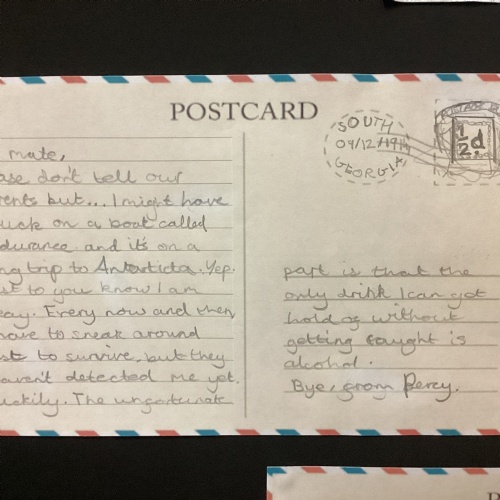 POSTCARD
SOUTH
04/12/1914
GEORGIA
1/2d
mate,
ase don't tell our
rents but... I might have
uck on a boat called
durance and it's on a
ng trip to Antartica. Yep.
st to you know I am
eay. Every now and then
have to sneak around
st to survive, but they
aven't detected me yet.
uckily. The unfortunate
part is that the
only drink I can get
hold of without
getting caught is
alcohol.
Bye, from Percy.